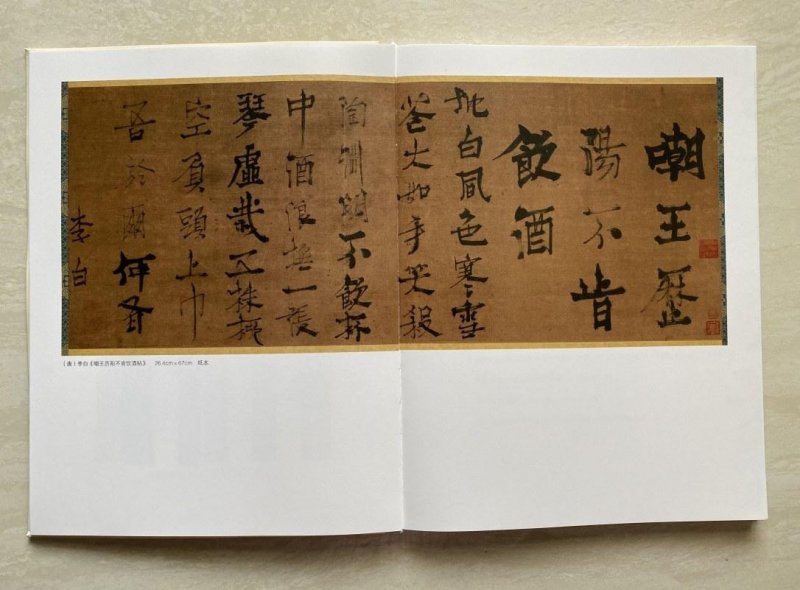 嘲王歷
陽不肯
飲酒
地白風色寒雪
花大如手笑殺
陶淵明不飲杯
中酒浪撫一張
琴虛栽五株柳
空負頭上巾
吾於爾何有
李白
（唐）李白《嘲王历阳不肯饮酒帖》 26.4cm×67cm 纸本